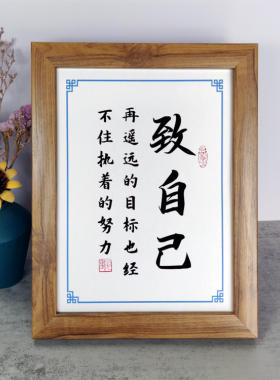 致自己
再遥远的目标也经
不住执着的努力